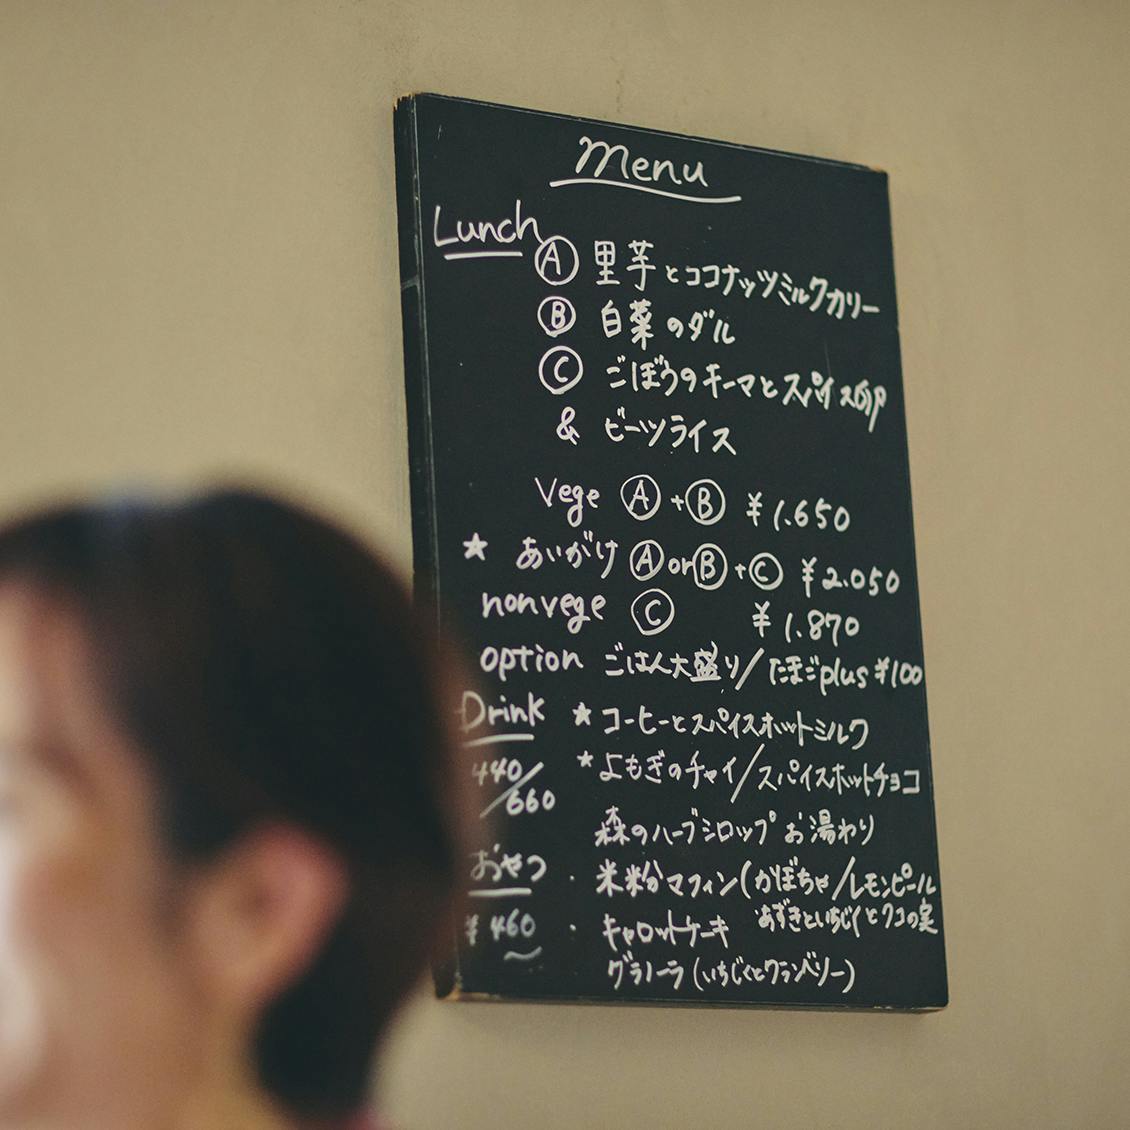 Menu
Lunch
Ⓐ 里芋とココナッツミルクカリー
Ⓑ 白菜のダル
Ⓒ ごぼうのキーマとスパイス
& ビーツライス
Vege Ⓐ+Ⓑ ¥1.650
★ あいがけ ⒶorⒷ+Ⓒ ¥2.050
nonvege Ⓒ ¥1.870
option ごはん大盛り/たまごplus ¥100
Drink ★コーヒーとスパイスホットミルク
440/660 ★よもぎのチャイ/スパイスホットチョコ
森のハーブシロップお湯わり
おやつ ・米粉マフィン(かぼちゃ/レモンピール
あずきといちじくとクコの実
¥460〜 ・キャロットケーキ
グラノーラ(いちじくとクランベリー)